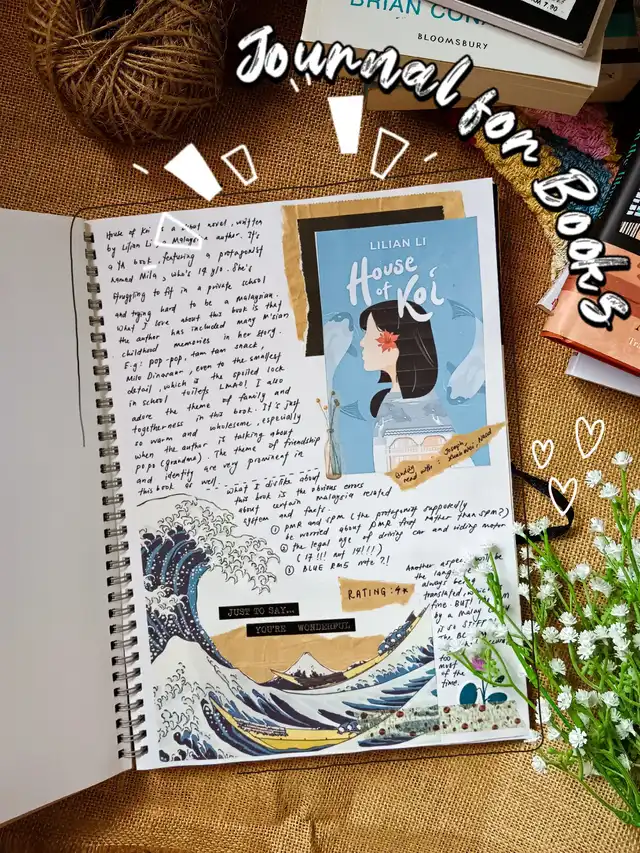 Journal for Books
BRIAN CON
BLOOMSBURY
RM 7.90
House of Koi a novel, written
by Lilian Li Malay author. It's
a YA book, featuring a protagonist
named Mila, who's 14 y/o. She's
struggling to fit in a private school
and trying hard to be a Malaysian.
What I love about this book is that
the author has included many M'sian
childhood memories in her story.
E.g: pop-pop, tam tam snack,
Milo Dinosaur, even to the smallest
detail, which is the spoiled lock
in school toilets LMAO! I also
adore the theme of family and
togetherness in this book. It's just
so warm and wholesome, especially
when the author is talking about
popo (grandma). The theme of friendship
and identity are very prominent in
this book as well.
LILIAN LI
House
of Koi
Buddy read with: Joseph,
What I dislike about
this book is the obvious errors
about certain Malaysia related
system and facts.
① PMR and SPM (the protagonist supposedly
be worried about PMR first rather than SPM?)
② the legal age of driving car and riding motor
(17!!! not 14!!!)
③ BLUE RM5 note?!
RATING: 4★
JUST TO SAY...
YOU'RE WONDERFUL
Another aspect be
the lang
always be
translated,
time. BUT!
by a Malay
is so STIFF
THE
too
most
of the
time.